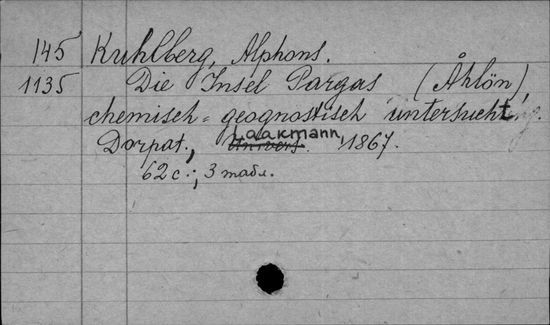 145 Kuhlberg, Alphons.
1135 Die Insel Pargas (Åhlön),
chemisch-geognostisch untersucht.
Dorpat, Laakmann, 1867.
62 c.; 3 табл.